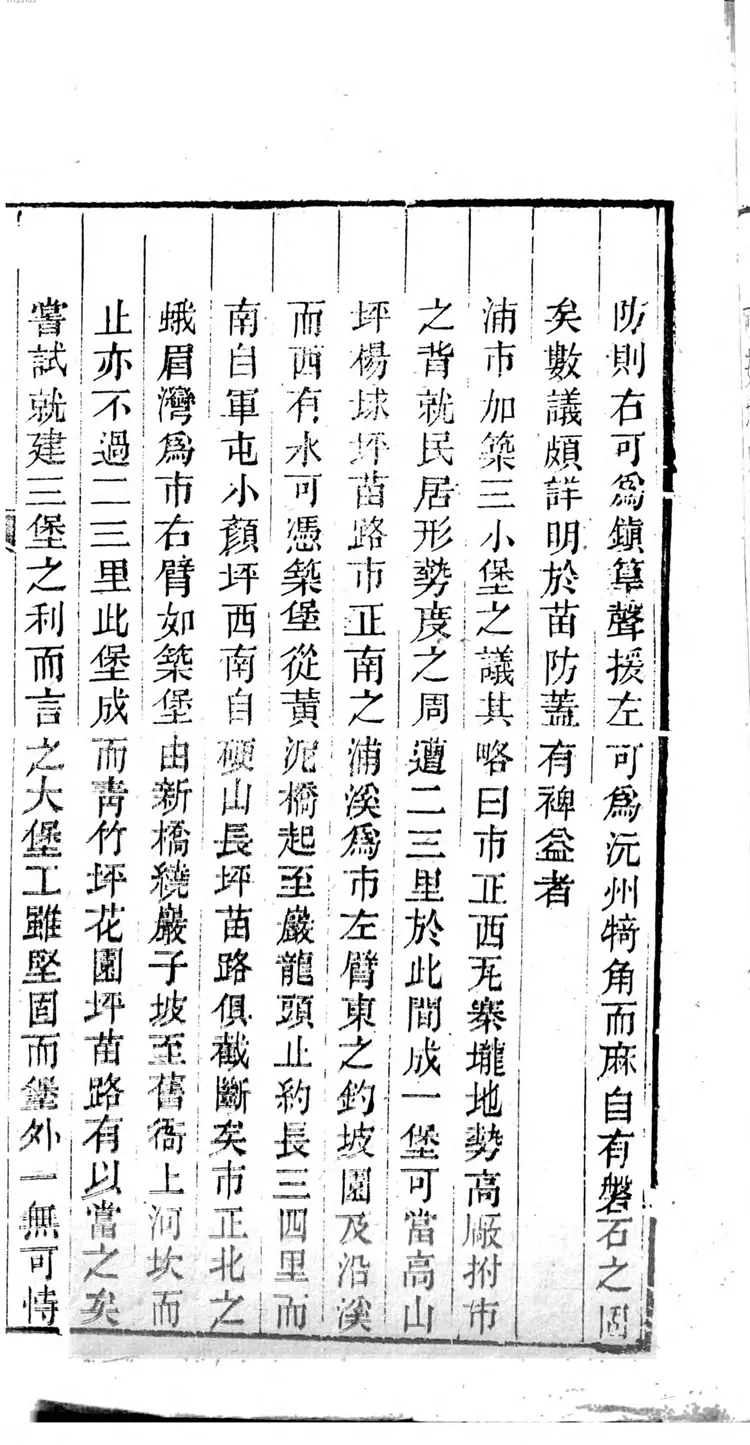 防則右可爲鎮筸聲援左可爲沅州犄角而麻自有磐石之固
矣數議頗詳明於苗防蓋有裨益者
浦市加築三小堡之議其略曰市正西瓦寨壠地勢高厰拊市
之背就民居形勢度之周遭二三里於此間成一堡可當高山
坪楊球坪苗路市正南之浦溪爲市左臂東之釣坡園及沿溪
而西有水可憑築堡從黃泥橋起至巖龍頭止約長三四里而
南自軍屯小顏坪西南自硬山長坪苗路俱截斷矣市正北之
蛾眉灣爲市右臂如築堡由新橋繞巖子坡至舊衙上河坎而
止亦不過二三里此堡成而靑竹坪花園坪苗路有以當之矣
嘗試就建三堡之利而言之大堡工雖堅固而堡外一無可恃